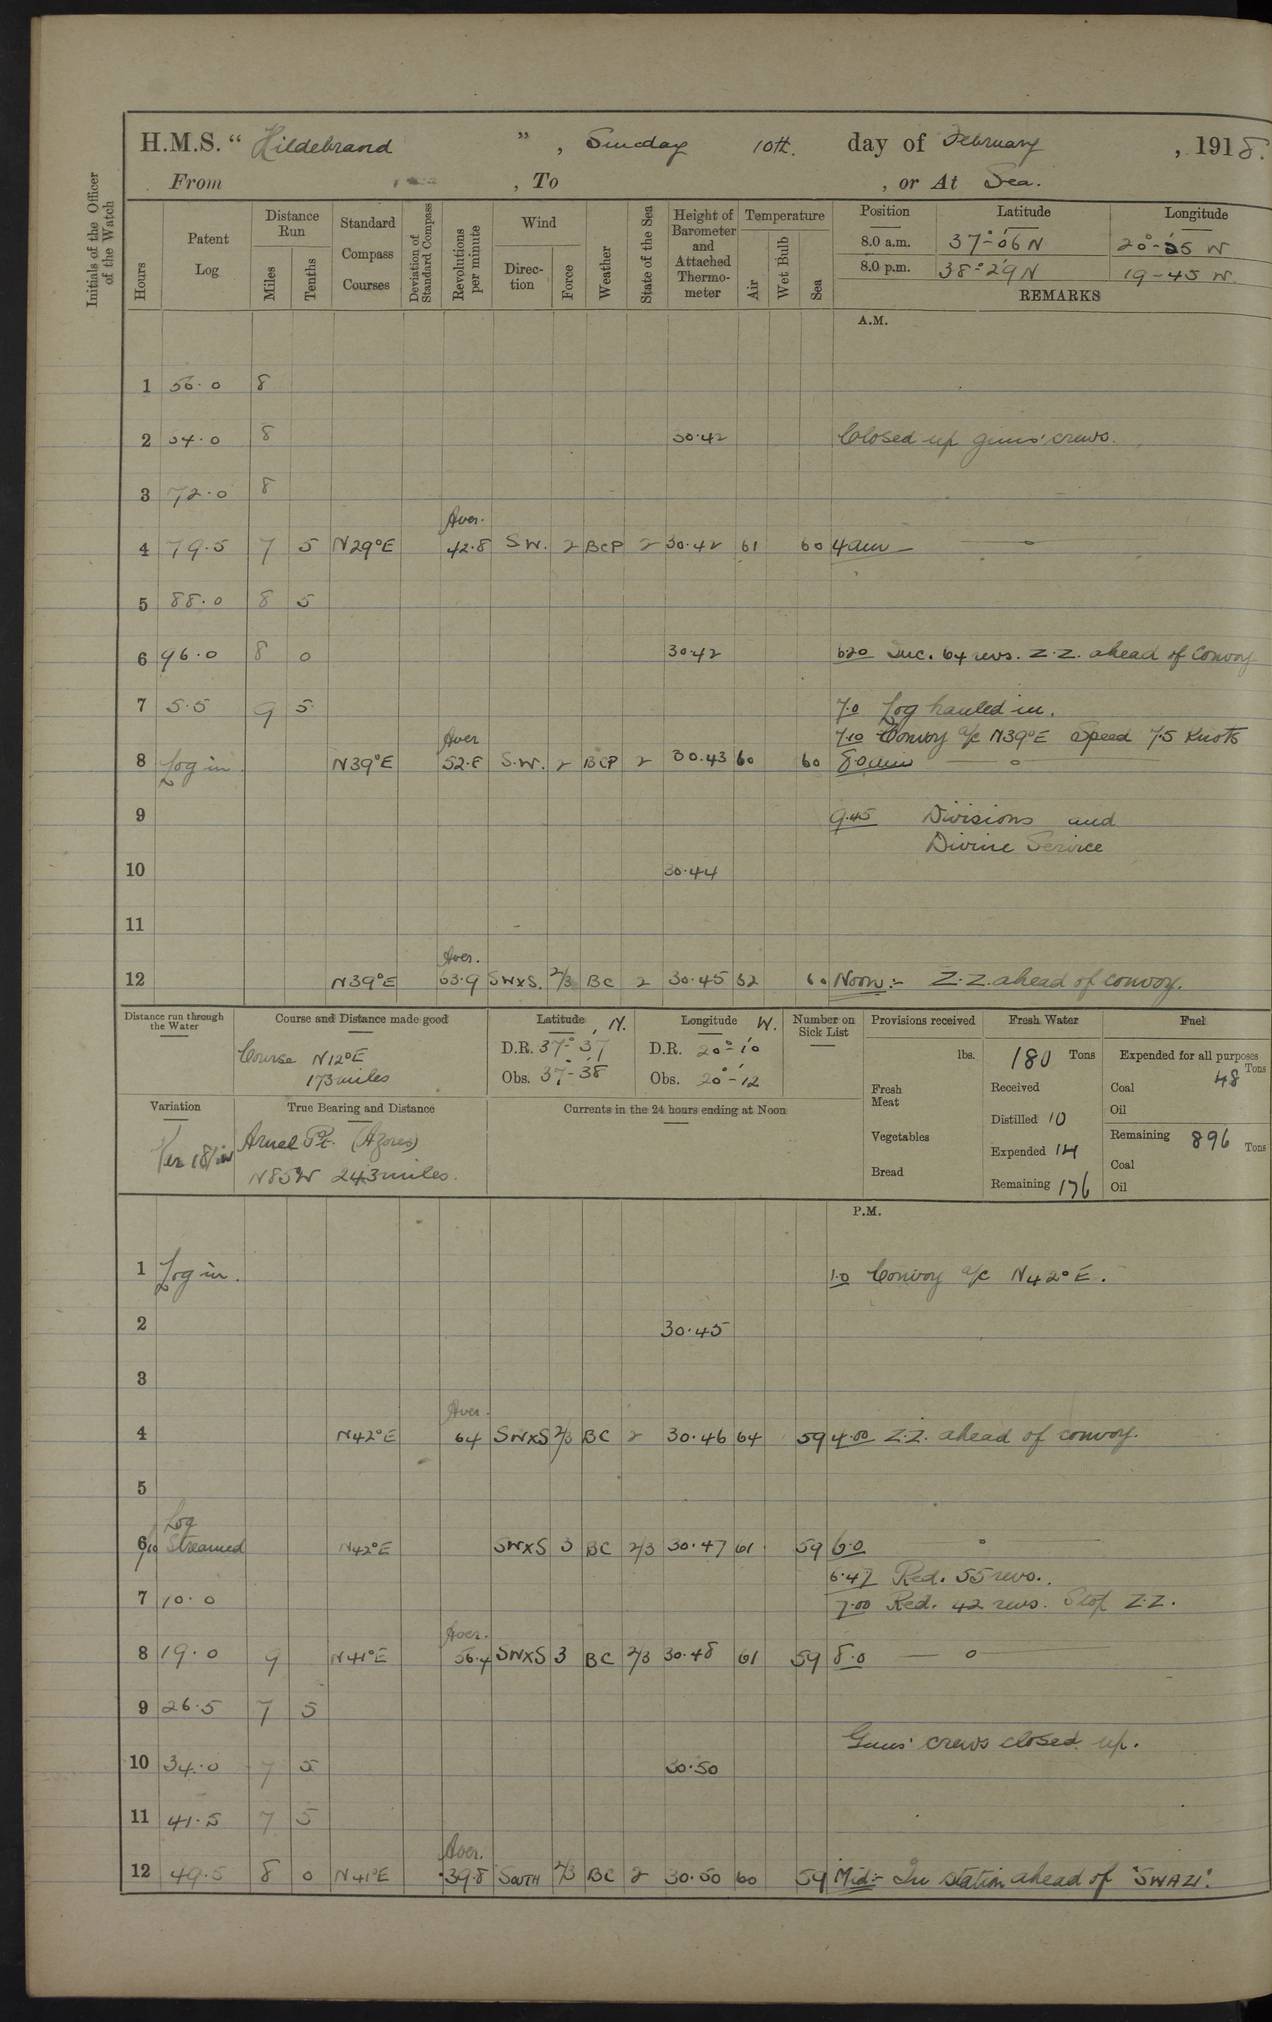 H.M.S. “ Hildebrand ”, Sunday 10th. day of February, 1918.
From , To , or At Sea.
Initials of the Officer of the Watch
Hours
Patent Log
Distance Run
Miles
Tenths
Standard Compass Courses
Deviation of Standard Compass
Revolutions per minute
Wind
Direction
Force
Weather
State of the Sea
Height of Barometer and Attached Thermometer
Temperature
Air
Wet Bulb
Sea
Position Latitude Longitude
8.0 a.m. 37°-06' N 20°-25' W
8.0 p.m. 38°-29' N 19-45 W
REMARKS
A.M.
1 56.0 8
2 64.0 8 30.42 Closed up guns' crews.
3 72.0 8
Aver.
4 79.5 7 5 N29°E 42.8 S.W. 2 BCP 2 30.42 61 60 4am —o—
5 88.0 8 5
6 96.0 8 0 30.42 620 Inc. 64 revs. Z.Z. ahead of Convoy
7 5.5 9 5 7.0 Log hauled in.
7.10 Convoy a/c N39°E Speed 7.5 Knots
Aver
8 Log in. N39°E 52.8 S.W. 2 BCP 2 30.43 60 60 8.0am —o—
9 9.45 Divisions and
Divine Service
10 30.44
11
Aver.
12 N39°E 63.9 SWxS. 2/3 BC 2 30.45 62 60 Noon:- Z.Z. ahead of convoy.
Distance run through the Water
Course and Distance made good
Course N12°E
173 miles
Latitude , N.
D.R. 37°-37
Obs. 37°-38'
Longitude W.
D.R. 20°-10'
Obs. 20°-12'
Number on Sick List
Provisions received
lbs.
Fresh Meat
Vegetables
Bread
Fresh Water
180 Tons
Received
Distilled 10
Expended 14
Remaining 176
Fuel
Expended for all purposes
48 Tons
Coal
Oil
Remaining 896 Tons
Coal
Oil
Variation
True Bearing and Distance
Arnel Pt. (Azores)
N85°W 243 miles.
Currents in the 24 hours ending at Noon
P.M.
1 Log in. 1.0 Convoy a/c N42°E.
2 30.45
3
Aver.
4 N42°E 64 SWxS 2/3 BC 2 30.46 64 59 4.00 Z.Z. ahead of convoy.
5
Log
6/10 Streamed N42°E SWxS 3 BC 2/3 30.47 61 59 6.0 o
6.47 Red. 55 revs.
7 10.0 7.00 Red. 42 revs. Stop Z.Z.
Aver.
8 19.0 9 N41°E 56.4 SWxS 3 BC 2/3 30.48 61 59 8.0 — o
9 26.5 7 5
Guns' crews closed up.
10 34.0 7 5 30.50
11 41.5 7 5
Aver.
12 49.5 8 0 N41°E 39.8 SOUTH 2/3 BC 2 30.50 60 59 Mid:- In station ahead of "SWAZI".